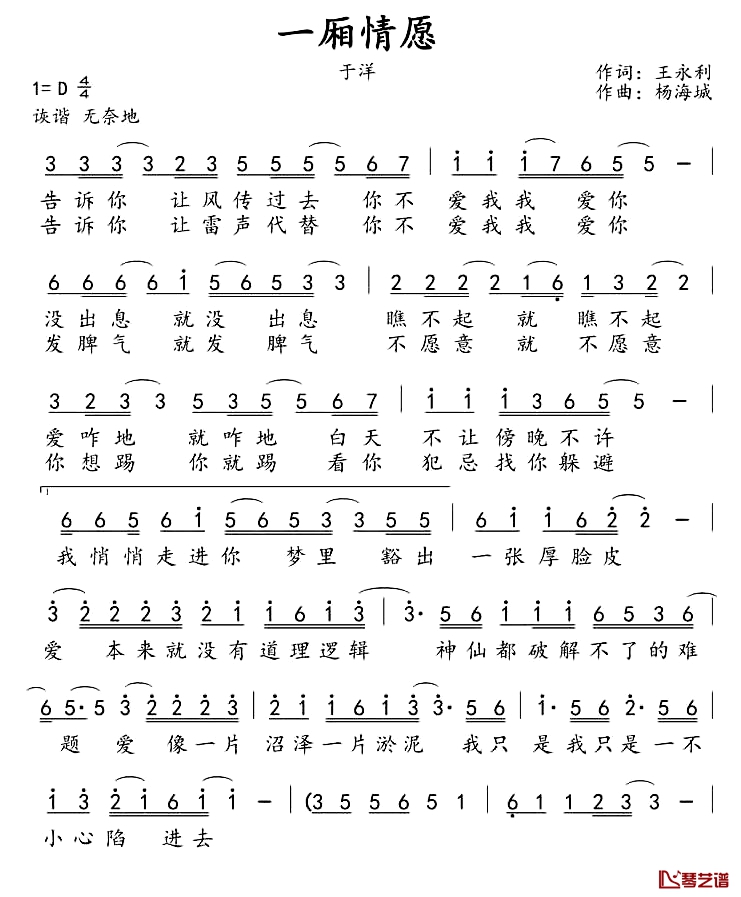 一厢情愿
于洋
作词：王永利
1= D 4/4
作曲：杨海城
诙谐 无奈地
3 3 3 3 2 3 5 5 5 5 6 7 | i i i 7 6 5 5 – |
告诉你 让风传过去 你不 爱我我 爱你
告诉你 让雷声代替 你不 爱我我 爱你
6 6 6 6 i 5 6 5 3 3 | 2 2 2 2 1 6 1 3 2 2 |
没出息 就没 出息 瞧不起 就 瞧不起
发脾气 就发 脾气 不愿意 就 不愿意
3 2 3 3 5 3 5 5 6 7 | i i i 3 6 5 5 – |
爱咋地 就咋地 白天 不让傍晚不许
你想踢 你就踢 看你 犯忌找你躲避
1
6 6 5 6 i 5 6 5 3 3 5 5 | 6 i i 6 2 2 – |
我悄悄走进你 梦里 豁出 一张厚脸皮
3 2 2 2 3 2 i i 6 i 3 | 3· 5 6 i i 6 5 3 6 |
爱 本来就没有道理逻辑 神仙都破解不了的难
6 5· 5 3 2 2 2 3 | 2 i i i i 3 3· 5 6 | i· 5 6 2· 5 6 |
题 爱 像一片 沼泽一片淤泥 我只 是我只是一不
i 3 2 i 6 i i – | (3 5 5 6 5 1 | 6 1 2 2 3 3 – |
小心陷 进去
琴艺谱